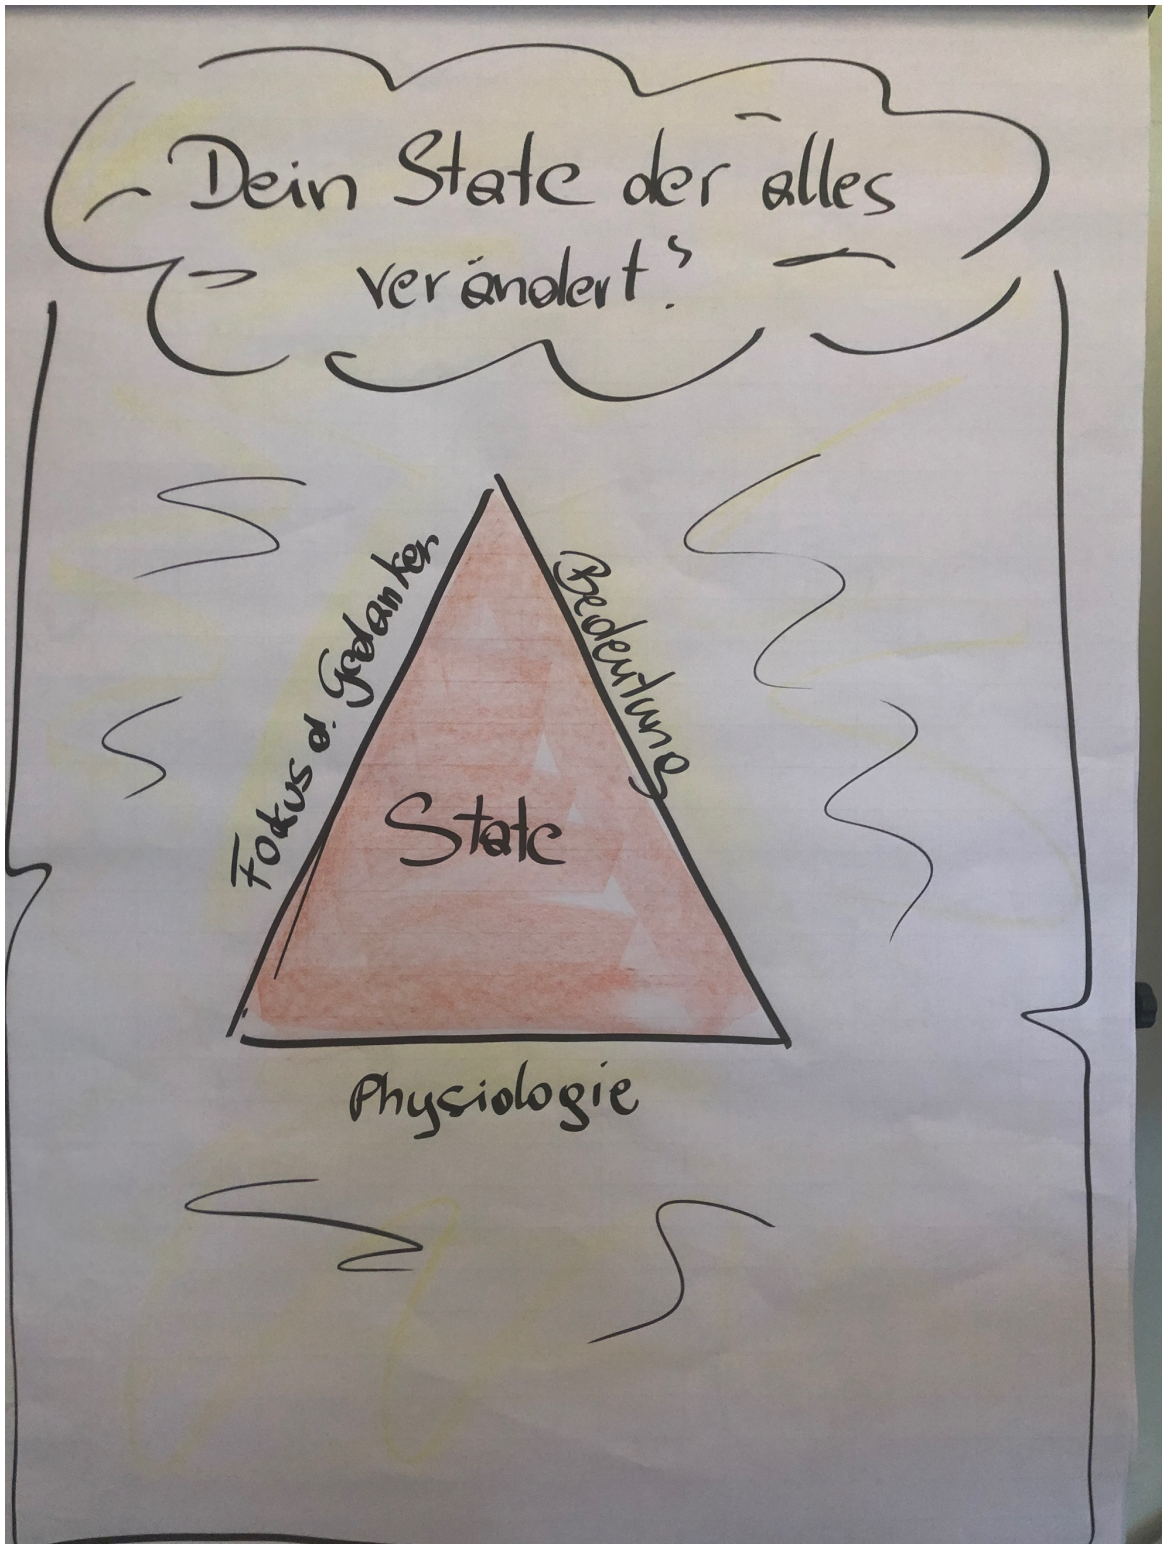 Dein State der alles
verändert?
Fokus d. Gedanken
Bedeutung
State
Physiologie